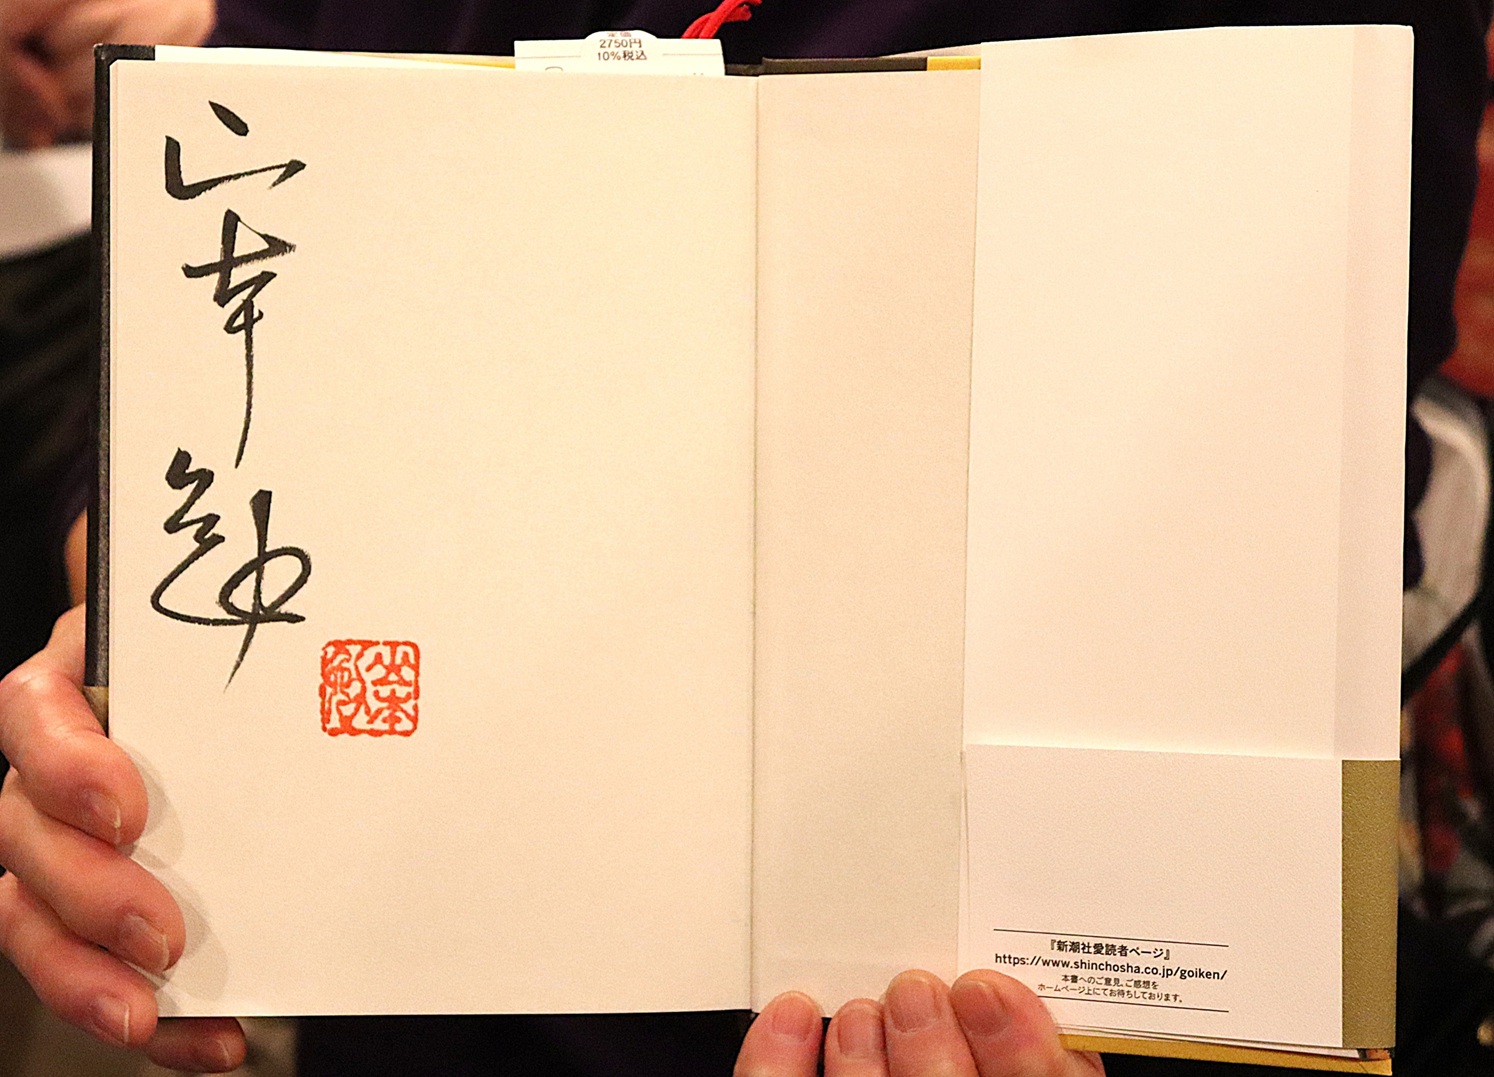 定価
2750円
10%税込
山本
山本
『新潮社愛読者ページ』
https://www.shinchosha.co.jp/goiken/
本書へのご意見、ご感想を
ホームページ上にてお待ちしております。